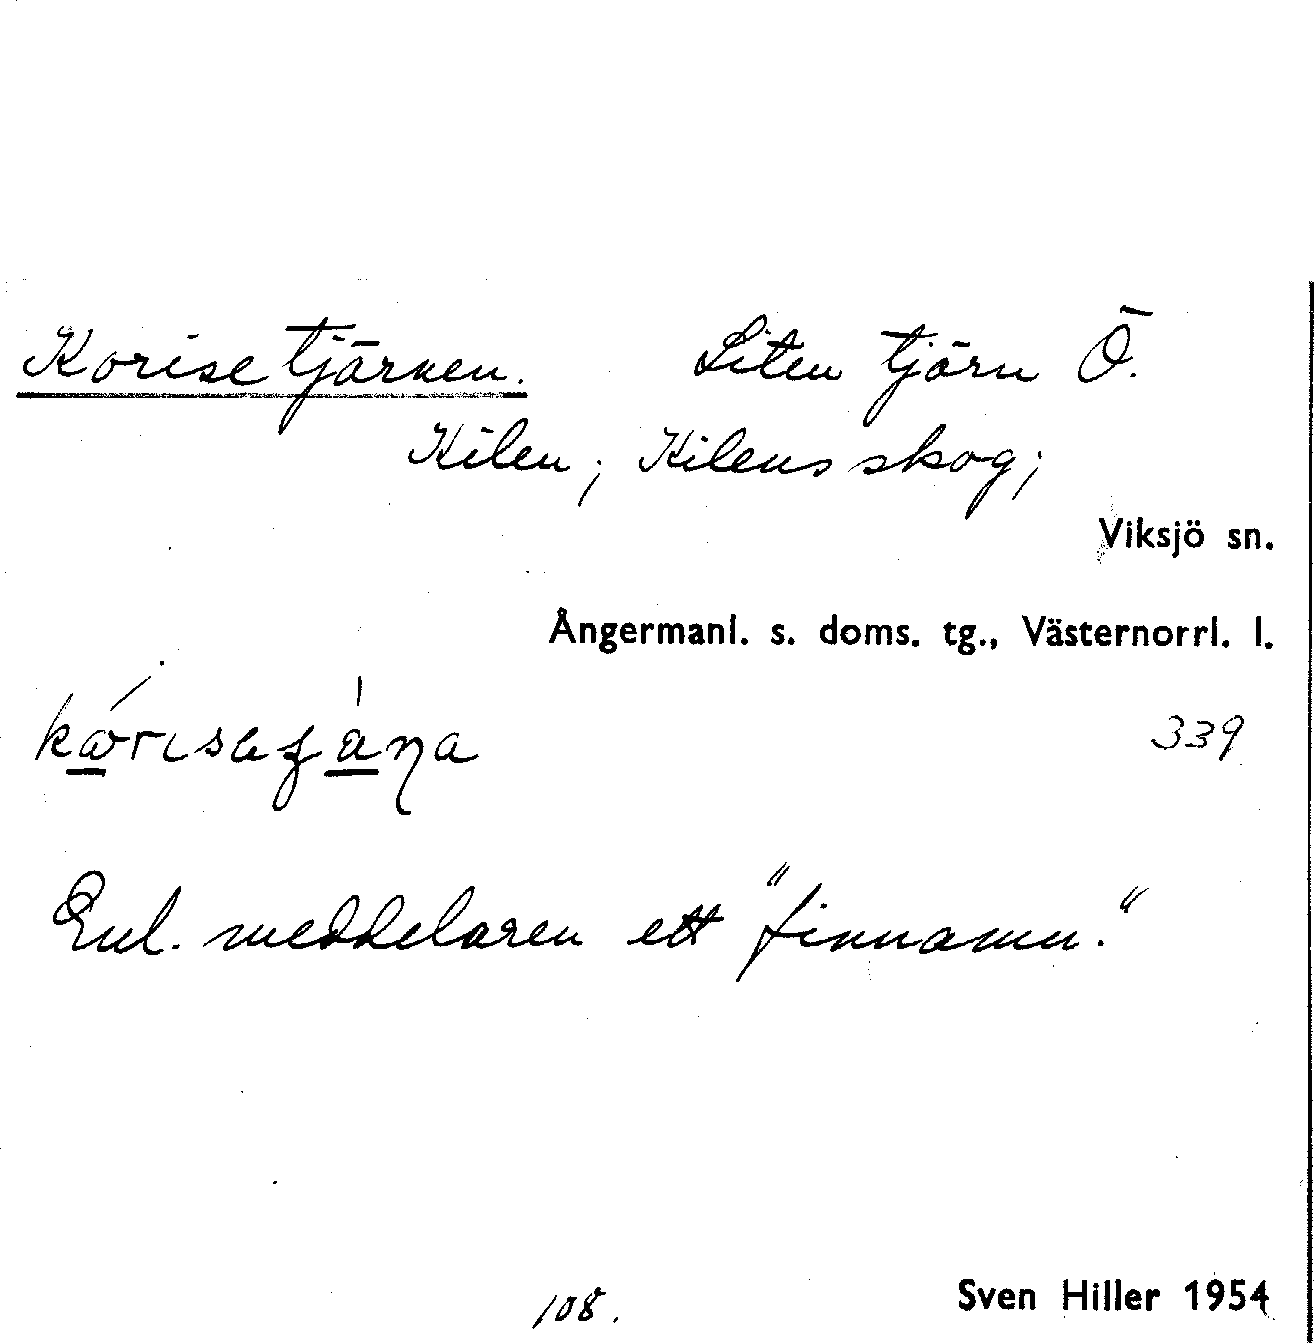 Korise tjärnen. Liten tjärn Ö.
Kilen; Kilens skog;
Viksjö sn.
Ångermanl. s. doms. tg., Västernorrl. l.
339
Enl. meddelaren ett "finnamn."
108.
Sven Hiller 1954